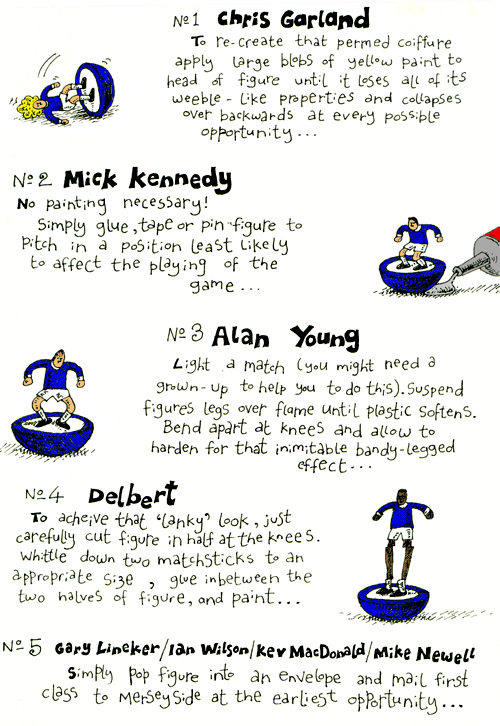 Nº1 Chris Garland
To re-create that permed coiffure
apply large blobs of yellow paint to
head of figure until it loses all of its
weeble-like properties and collapses
over backwards at every possible
opportunity...
Nº2 Mick Kennedy
No painting necessary!
Simply glue, tape or pin figure to
pitch in a position least likely
to affect the playing of the
game...
Nº3 Alan Young
Light a match (you might need a
grown-up to help you to do this). Suspend
figures legs over flame until plastic softens.
Bend apart at knees and allow to
harden for that inimitable bandy-legged
effect...
Nº4 Delbert
To acheive that 'lanky' look, just
carefully cut figure in half at the knees.
Whittle down two matchsticks to an
appropriate size, glue inbetween the
two halves of figure, and paint...
Nº5 Gary Lineker/Ian Wilson/Kev MacDonald/Mike Newell
Simply pop figure into an envelope and mail first
class to Merseyside at the earliest opportunity...